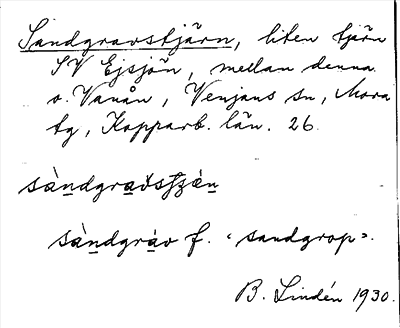 Sandgravstjärn, liten tjärn
SV Ejsjön, mellan denna
o. Vanån, Venjans sn, Mora
tg, Kopparb. län. 26.
sàndgra
sàndgràv f. "sandgrop".
B. Lindén 1930.